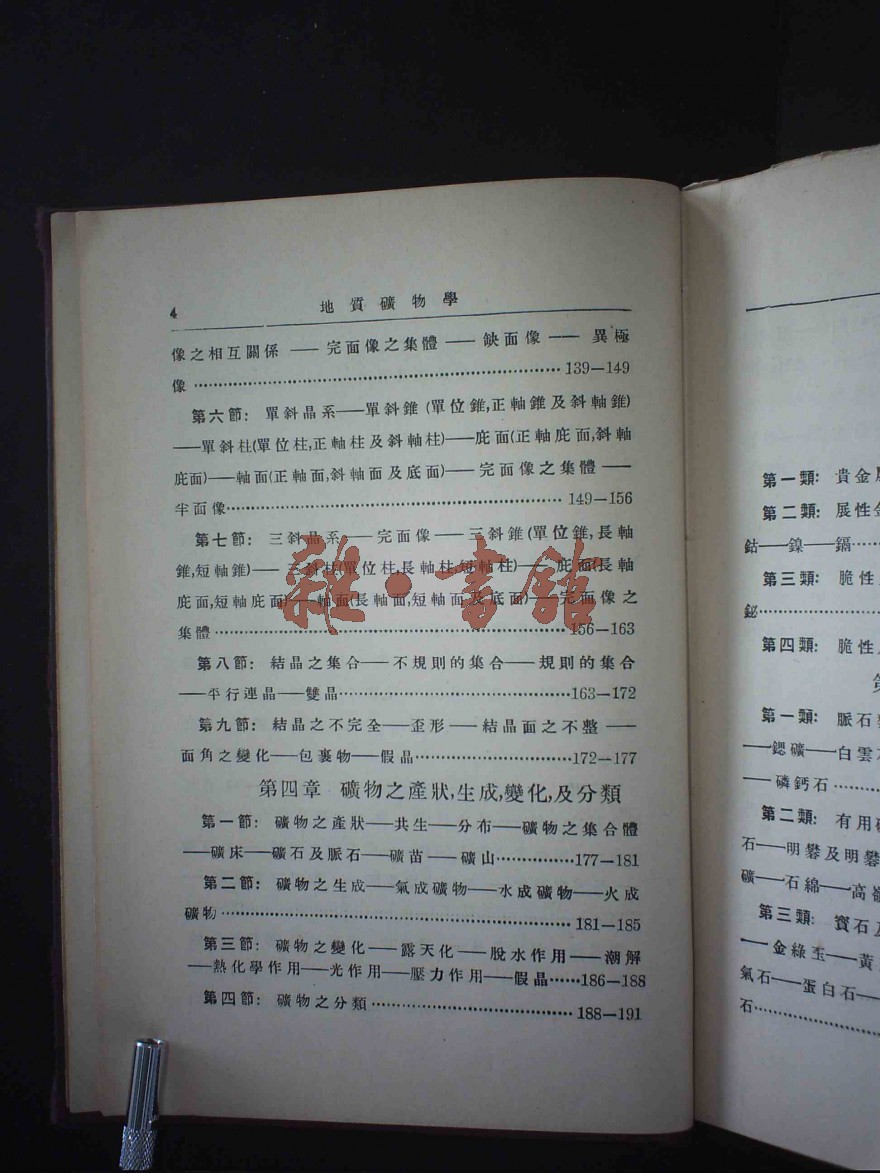 4
地質礦物學
像之相互關係 —— 完面像之集體 —— 缺面像 —— 異極
像 ………………………………………… 139—149
第六節: 單斜晶系——單斜錐 (單位錐,正軸錐及斜軸錐)
——單斜柱(單位柱,正軸柱及斜軸柱)——庇面(正軸庇面,斜軸
庇面)——軸面(正軸面,斜軸面及底面)—— 完面像之集體 ——
半面像………………………………………… 149—156
第七節: 三斜晶系—— 完面像 —— 三斜錐(單位錐,長軸
錐,短軸錐)—— 三斜柱(單位柱,長軸柱,短軸柱) —— 庇面(長軸
庇面,短軸庇面)——軸面(長軸面,短軸面及底面)——完面像之
集體 ………………………………………… 156—163
第八節: 結晶之集合——不規則的集合——規則的集合
——平行連晶——雙晶…………………………163—172
第九節: 結晶之不完全——歪形——結晶面之不整 ——
面角之變化——包裹物——假晶………………172—177
第四章 礦物之產狀,生成,變化,及分類
第一節: 礦物之產狀——共生——分布——礦物之集合體
——礦床——礦石及脈石——礦苗——礦山……………177—181
第二節: 礦物之生成——氣成礦物——水成礦物——火成
礦物 ………………………………………… 181—185
第三節: 礦物之變化——露天化——脫水作用——潮解
——熱化學作用——光作用——壓力作用——假晶……186—188
第四節: 礦物之分類 ………………………… 188—191
雜·書館
第一類: 貴金
第二類: 展性
鈷——鎳——鎘……
第三類: 脆性
鉍………………
第四類: 脆性
第一類: 脈石
——鍶礦——白雲
——磷鈣石………
第二類: 有用
石——明礬及明礬
礦——石綿——高嶺
第三類: 寶石及
——金綠玉——黃
氣石——蛋白石——
石………………